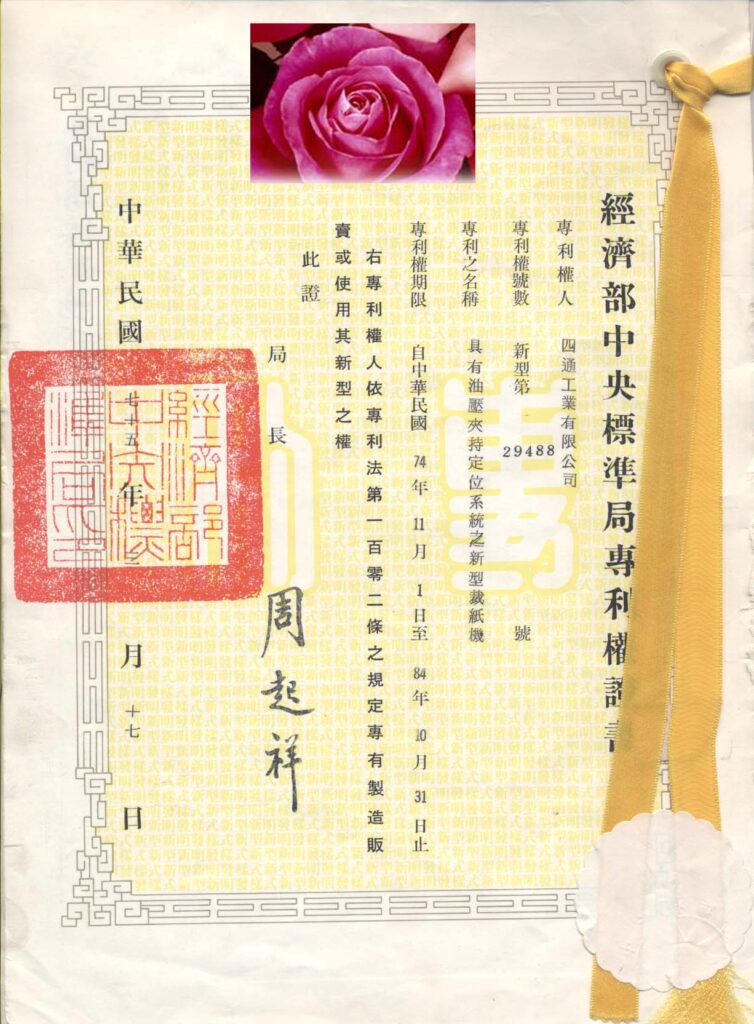 經濟部中央標準局專利權證書
專利權人 四通工業有限公司
專利權號數 新型第 29488 號
專利之名稱 具有油壓夾持定位系統之新型裁紙機
專利權期限 自中華民國 74 年 11 月 1 日至 84 年 10 月 31 日止
右專利權人依專利法第一百零二條之規定專有製造販
賣或使用其新型之權
此證
局長 周起祥
中華民國 七十五 年 月 十七 日
經濟部
中央標
準局印